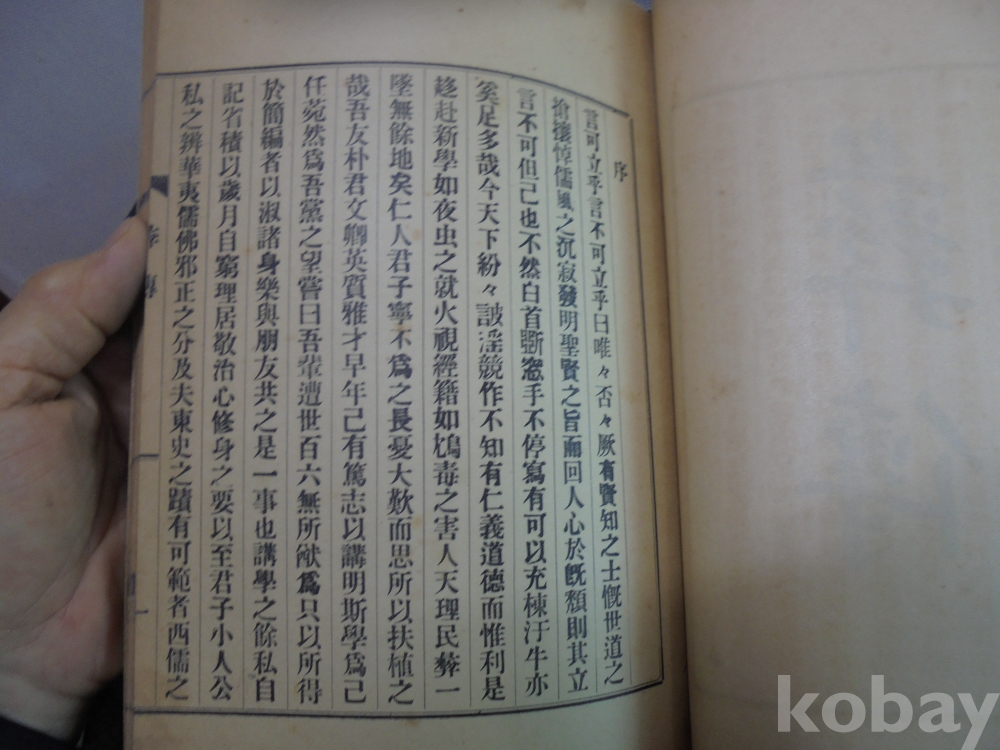 序
言可立乎言不可立乎曰唯々否々厥有賢知之士慨世道之
搶攘悼儒風之沉寂發明聖賢之旨而回人心於旣頹則其立
言不可但已也不然白首斵窓手不停寫有可以充棟汗牛亦
奚足多哉今天下紛々詖淫競作不知有仁義道德而惟利是
趍赴新學如夜虫之就火視經籍如鴆毒之害人天理民彝一
墜無餘地矣仁人君子寧不爲之長憂大歎而思所以扶植之
哉吾友朴君文卿英質雅才早年已有篤志以講明斯學爲己
任菀然爲吾黨之望嘗曰吾輩遭世百六無所猷爲只以所得
於簡編者以淑諸身樂與朋友共之是一事也講學之餘私自
記省積以歲月自窮理居敬治心修身之要以至君子小人公
私之辨華夷儒佛邪正之分及夫東史之蹟有可範者西儒之
序
一
kobay